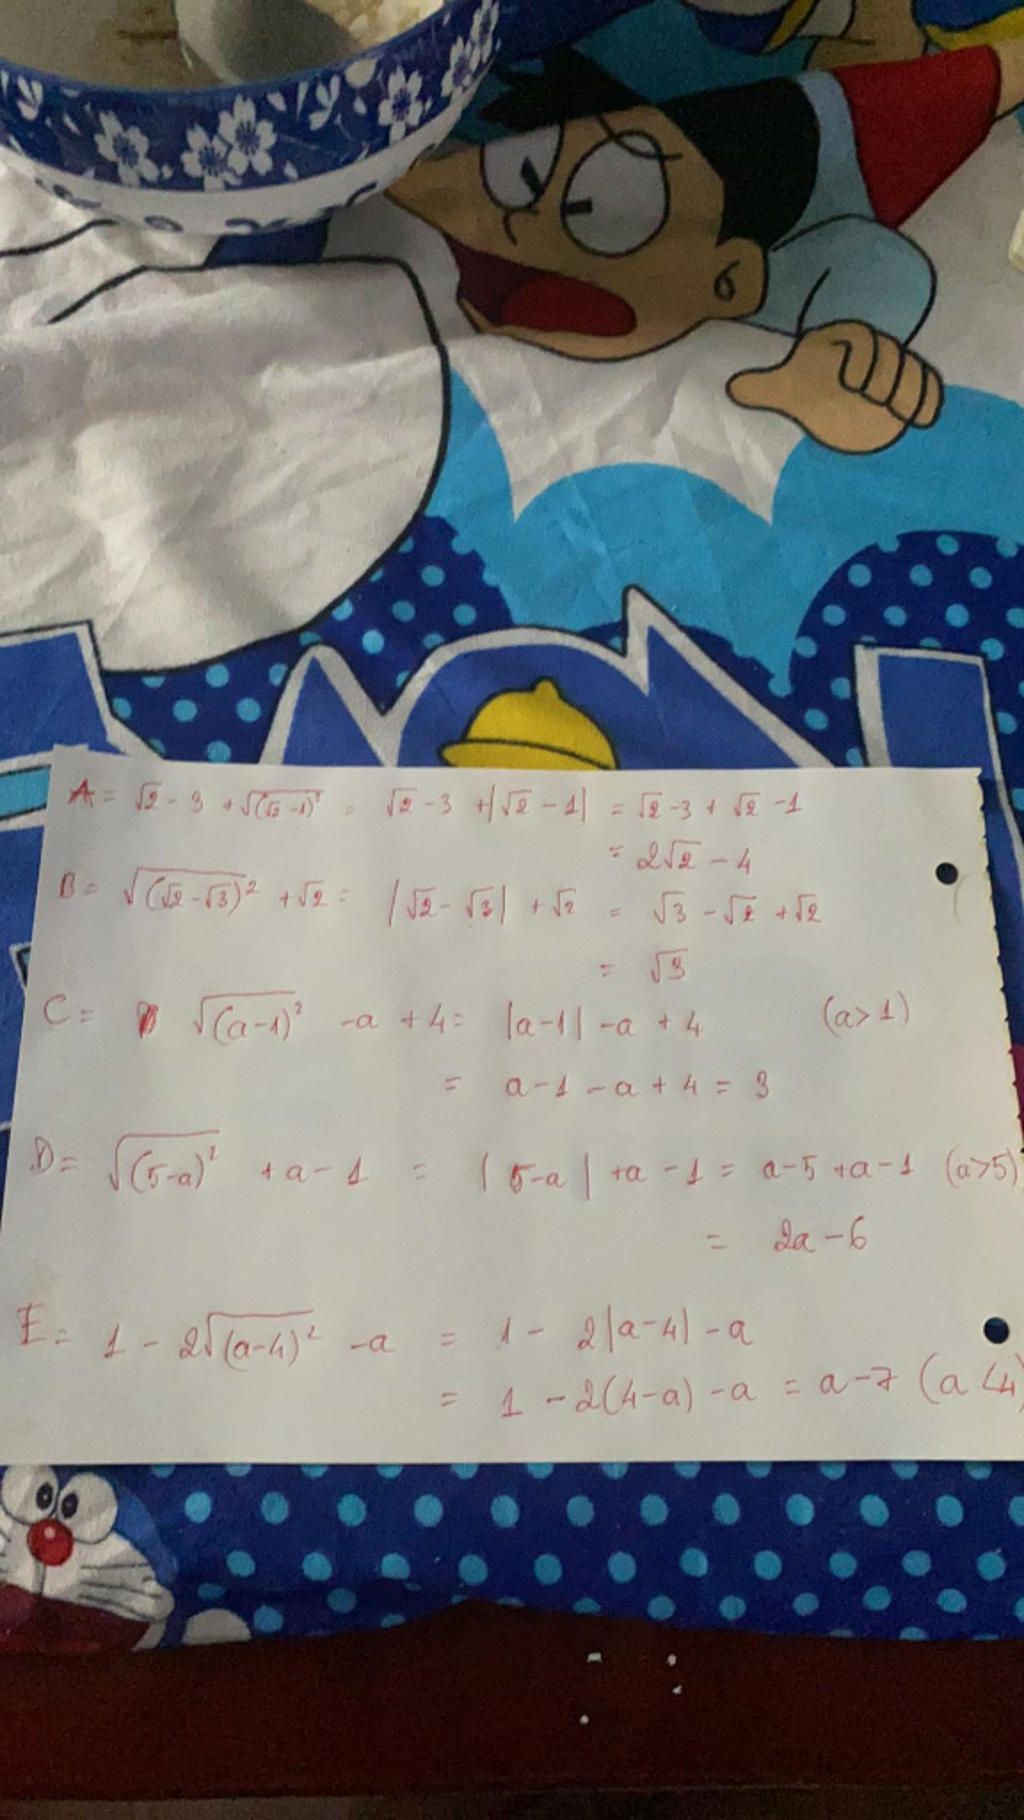 A = √2 - 3 + √(√2 - 1)² = √2 - 3 + |√2 - 1| = √2 - 3 + √2 - 1
= 2√2 - 4
B = √(√2 - √3)² + √2 = |√2 - √3| + √2 = √3 - √2 + √2
= √3
C = √(a-1)² - a + 4 = |a-1| - a + 4 (a > 1)
= a - 1 - a + 4 = 3
D = √(5-a)² + a - 1 = |5-a| + a - 1 = a - 5 + a - 1 (a > 5)
= 2a - 6
E = 1 - 2√(a-4)² - a = 1 - 2|a-4| - a
= 1 - 2(4-a) - a = a - 7 (a < 4)